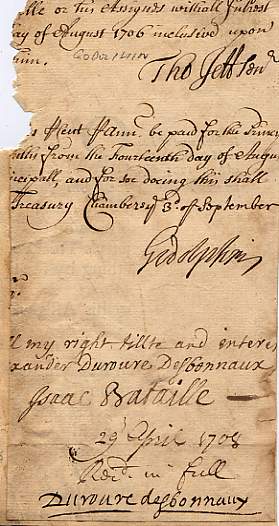 or his Assignes withall Interest
day of August 1706 inclusive upon
Godolphin
Tho Jett
be paid for the
from the Fourteenth day of Augu
and for soe doeing this shall
Treasury Chambers 3d of September
Godolphin
my right title and interes
xander Duroure Desbonnaux
Isaac Bataille
29 April 1708
Recd. in full
Duroure desbonnaux